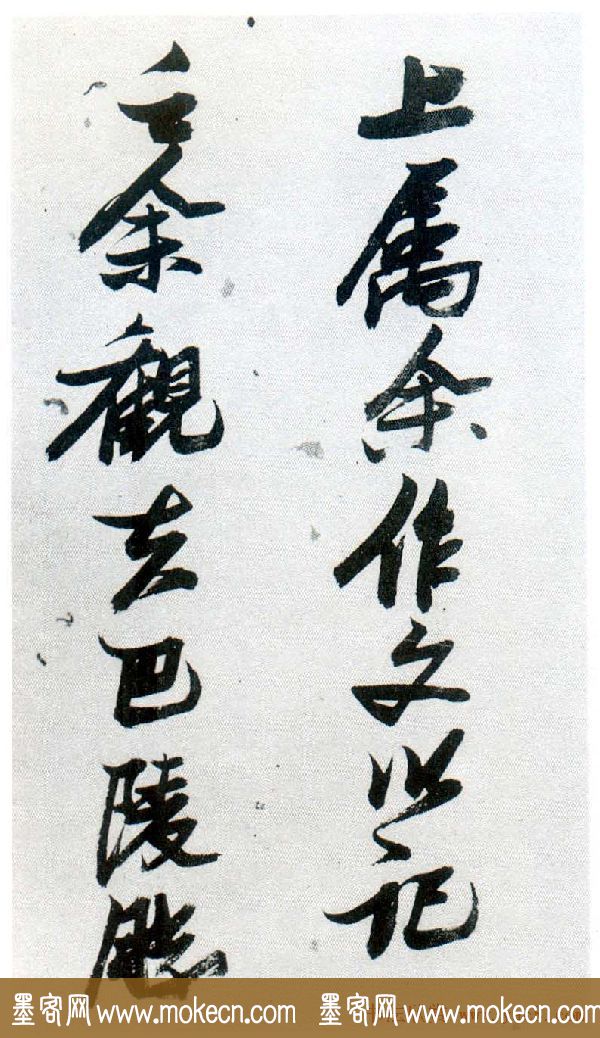 www.mokecn.com
上属余作文以记
之余觀夫巴陵勝
墨客网 www.mokecn.com 墨客网 www.mokecn.com